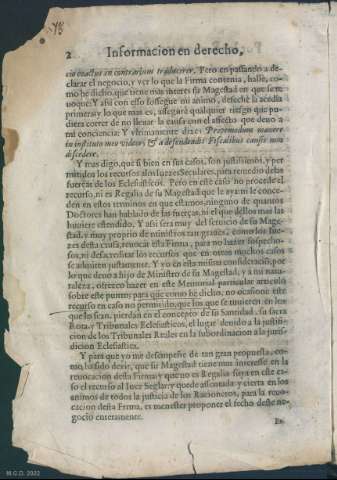 2 Informacion en derecho,
cio exactus in contrarium traducerer. Pero en passando a de-
clarar el negocio, y ver lo que la Firma contenia, hallè, co-
mo he dicho, que tiene mas interes su Magestad en que se re-
uoque: Y assi con esso sosseguè mi animo, desechè la acedia
primera; y lo que mas es, asseguré qualquier riesgo que pu-
diera correr de no llenar la causa del afecto que deuo a
mi conciencia: Y vltimamente dixe: Propemodum manere
in instituto meo videor; & a defendendis Fiscalibus causis non
discedere.
Y mas digo, que si bien en sus casos, son justissimos, y per
mitidos los recursos a los Iuezes Seculares, para remedio de las
fuerças de los Eclesiasticos. Pero en este caso no procede el
recurso, ni es Regalia de su Magestad que le aya ni le conce-
den en estos terminos en que estamos, ninguno de quantos
Doctores han hablado de las fuerças, ni el que dellos mas las
huuiere estendido. Y assi sera muy del seruicio de su Mage-
stad, y muy proprio de ministros tan graues, como los Iue-
zes desta causa, reuocar esta Firma, para no hazer sospecho-
sos, ni desacreditar los recursos que en otros muchos casos
se admiten justamente. Y yo en esta misma consideracion, por
lo que deuo a hijo de Ministro de su Magestad, y a mi natu-
raleza, ofrezco hazer en este Memorial particular articulo
sobre este punto; para que como he dicho, no ocasione este
recurso en caso no permitido, que los que se tuuieren en los
que lo sean, pierdan en el concepto de su Santidad, su sacra
Rota, y Tribunales Eclesiasticos, el lugar deuido a la justifi-
cacion de los Tribunales Reales en la subordinacion a la juris-
diccion Eclesiastica.
Y para que yo me desempeñe de tan gran propuesta, co-
mo ha sido dezir, que su Magestad tiene mas interesse en la
reuocacion desta Firma; y que no es Regalia suya en este ca-
so el recurso al Iuez Seglar; y quede assentada y cierta en los
animos de todos la justicia de los Racioneros, para la reuo-
cacion desta Firma, es menester proponer el fecho deste ne-
gocio enteramente.
M.C.D. 2022